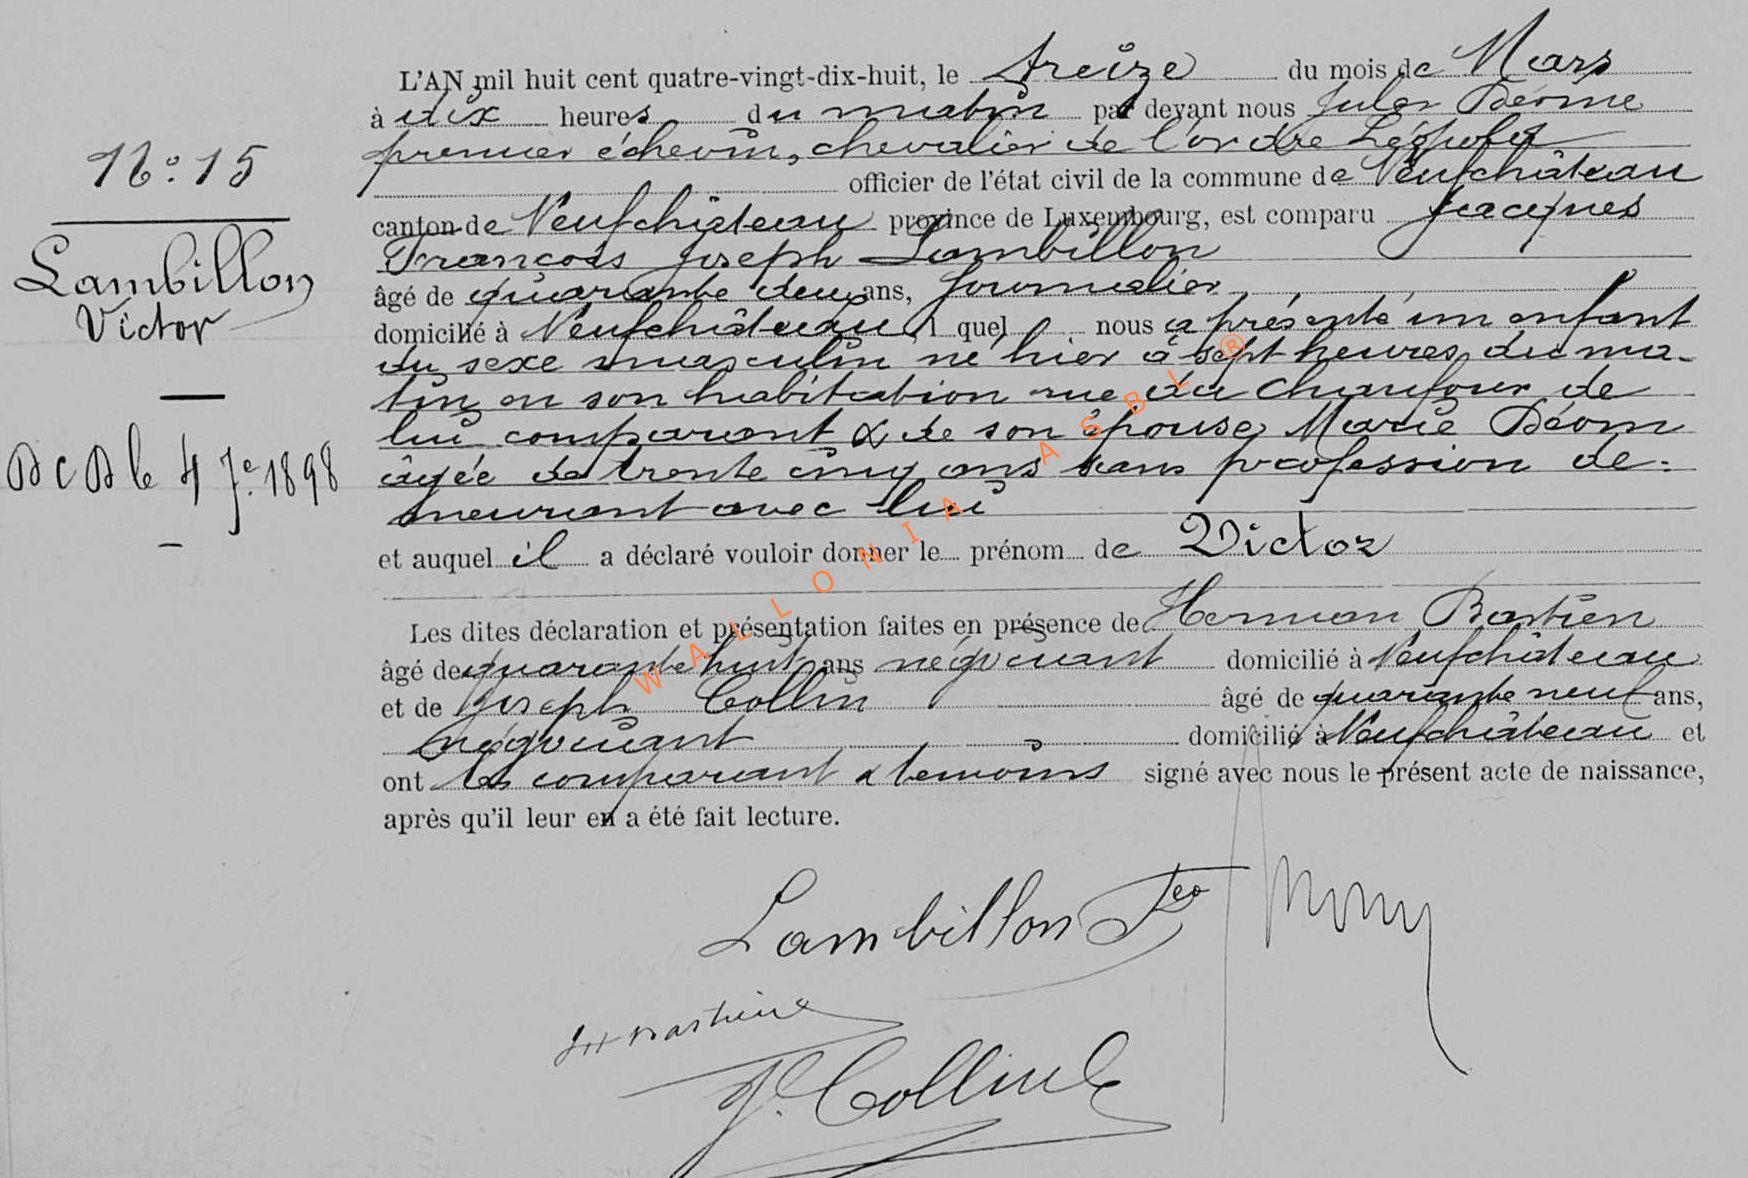 L'AN mil huit cent quatre-vingt-dix-huit, le treize du mois de Mars
à dix heures du matin par devant nous Jules Déome
premier échevin, chevalier de l'ordre Léopold
officier de l'état civil de la commune de Neufchâteau
canton de Neufchâteau province de Luxembourg, est comparu Jacques
François Joseph Lambillon
âgé de quarante deux ans, journalier
domicilié à Neufchâteau, l quel nous a présenté un enfant
du sexe masculin né hier à sept heures du ma-
tin en son habitation rue du Chaufour de
lui comparant & de son épouse Marie Déom
âgée de trente cinq ans sans profession de=
meurant avec lui
et auquel il a déclaré vouloir donner le prénom de Victor
Les dites déclaration et présentation faites en présence de Herman Bastien
âgé de quarante huit ans négociant domicilié à Neufchâteau
et de Joseph Collin âgé de quarante neuf ans,
négociant domicilié à Neufchâteau et
ont les comparant & témoins signé avec nous le présent acte de naissance,
après qu'il leur en a été fait lecture.
No 15
Lambillon
Victor
DCD le 4 7e 1898
Lambillon
J. Collin
WALLONIA ASBL ®